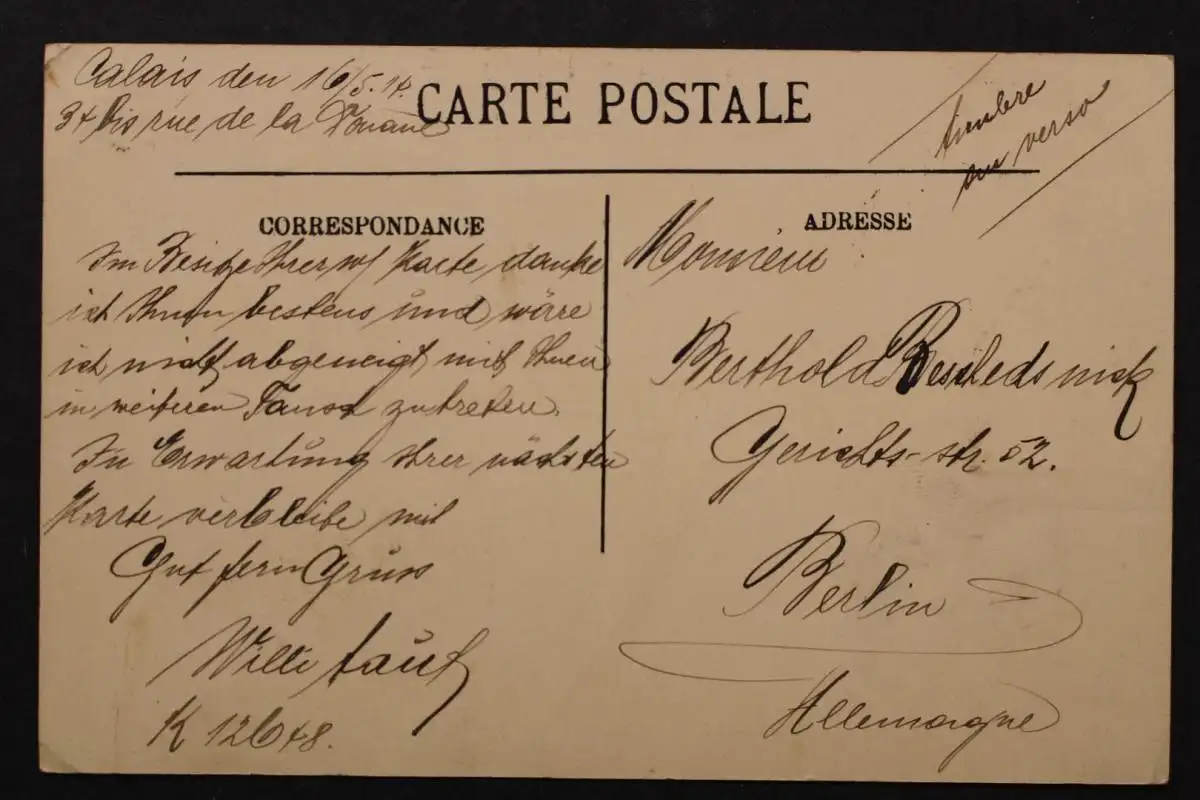 Calais den 16/5.14.
34 bis rue de la Douane
CARTE POSTALE
timbre
au verso
CORRESPONDANCE
Im Besitze Ihrer w/ Karte, danke
ich Ihnen bestens und wäre
ich nicht abgeneigt, mit Ihnen
in weiteren Tausch zu treten.
In Erwartung Ihrer nächsten
Karte verbleibe mit
Gut fern Gruss
Willi
K 12648.
ADRESSE
Monsieur
Berthold
Gerichts-str. 52.
Berlin
Allemagne